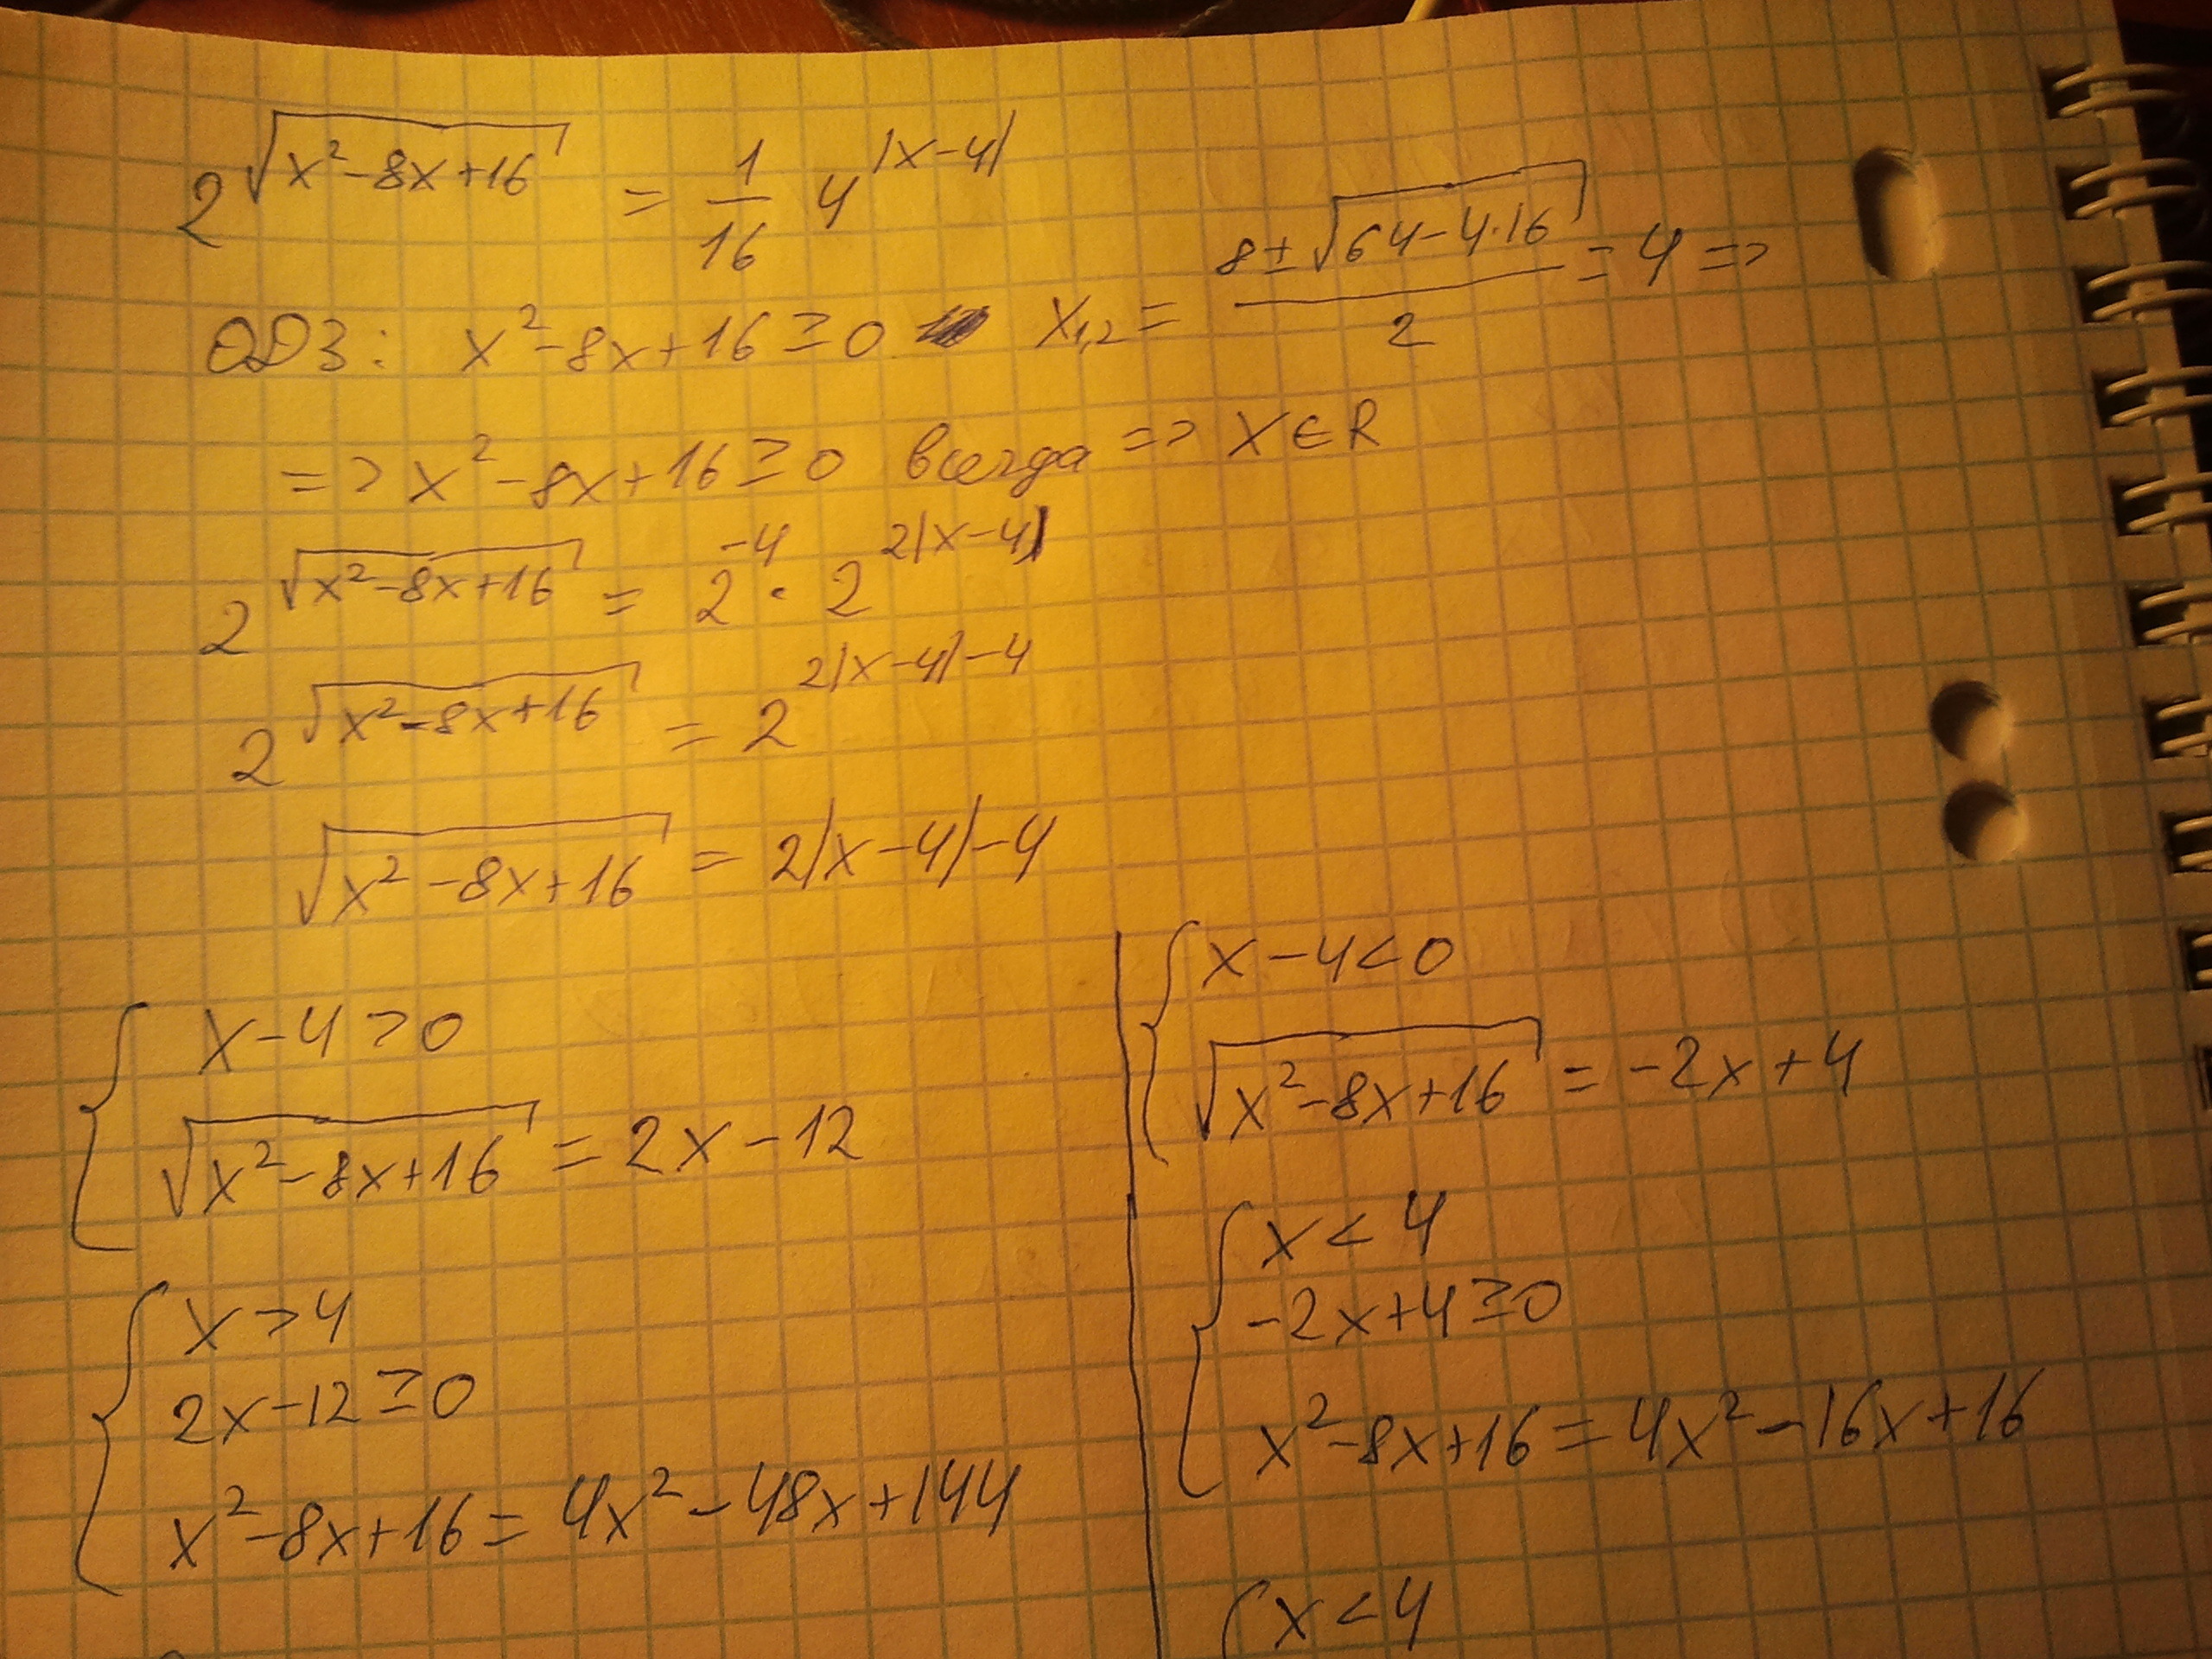 2^√(x²-8x+16) = 1/16 4^|x-4|
ОДЗ: x²-8x+16≥0 x₁,₂ = (8±√(64-4·16))/2 = 4 =>
=> x²-8x+16≥0 всегда => x∈R
2^√(x²-8x+16) = 2^-4 · 2^2|x-4|
2^√(x²-8x+16) = 2^2|x-4|-4
√(x²-8x+16) = 2|x-4|-4
{ x-4>0
√(x²-8x+16) = 2x-12
{ x>4
2x-12≥0
x²-8x+16=4x²-48x+144
{ x-4<0
√(x²-8x+16) = -2x+4
{ x<4
-2x+4≥0
x²-8x+16=4x²-16x+16
{ x<4